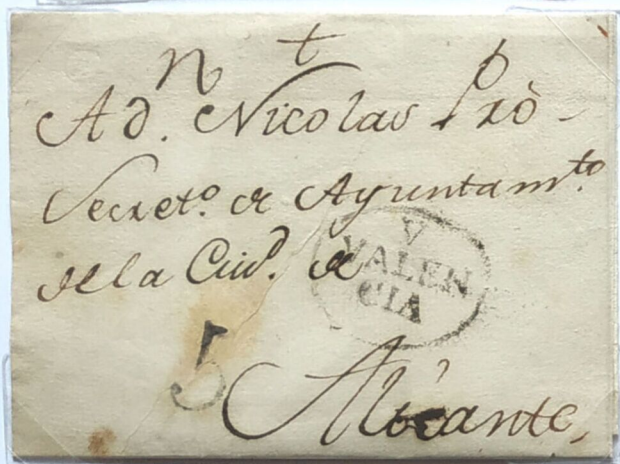 n †
A d.ⁿ Nicolas Prò
Secret.º de Ayuntam.to
de la Ciud. de
V
VALEN
CIA
5
Alicante,